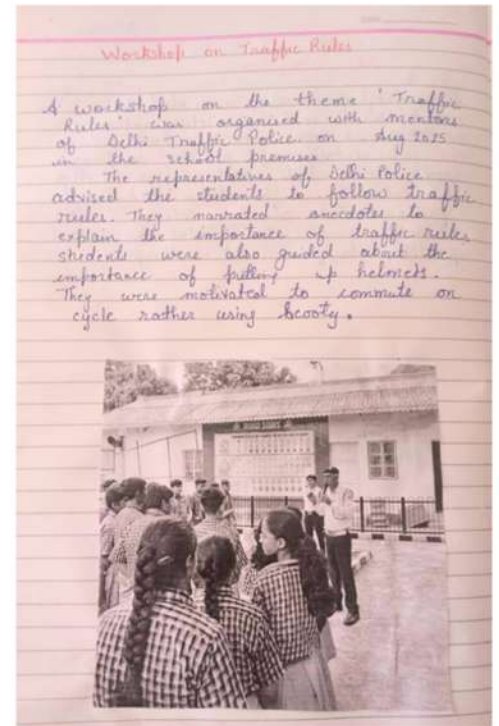 Workshop on Traffic Rules
A workshop on the theme 'Traffic
Rules' was organised with mentors
of Delhi Traffic Police on Aug 2025
in the school premises
The representatives of Delhi Police
advised the students to follow traffic
rules. They narrated anecdotes to
explain the importance of traffic rules
students were also guided about the
importance of putting up helmets.
They were motivated to commute on
cycle rather using scooty.